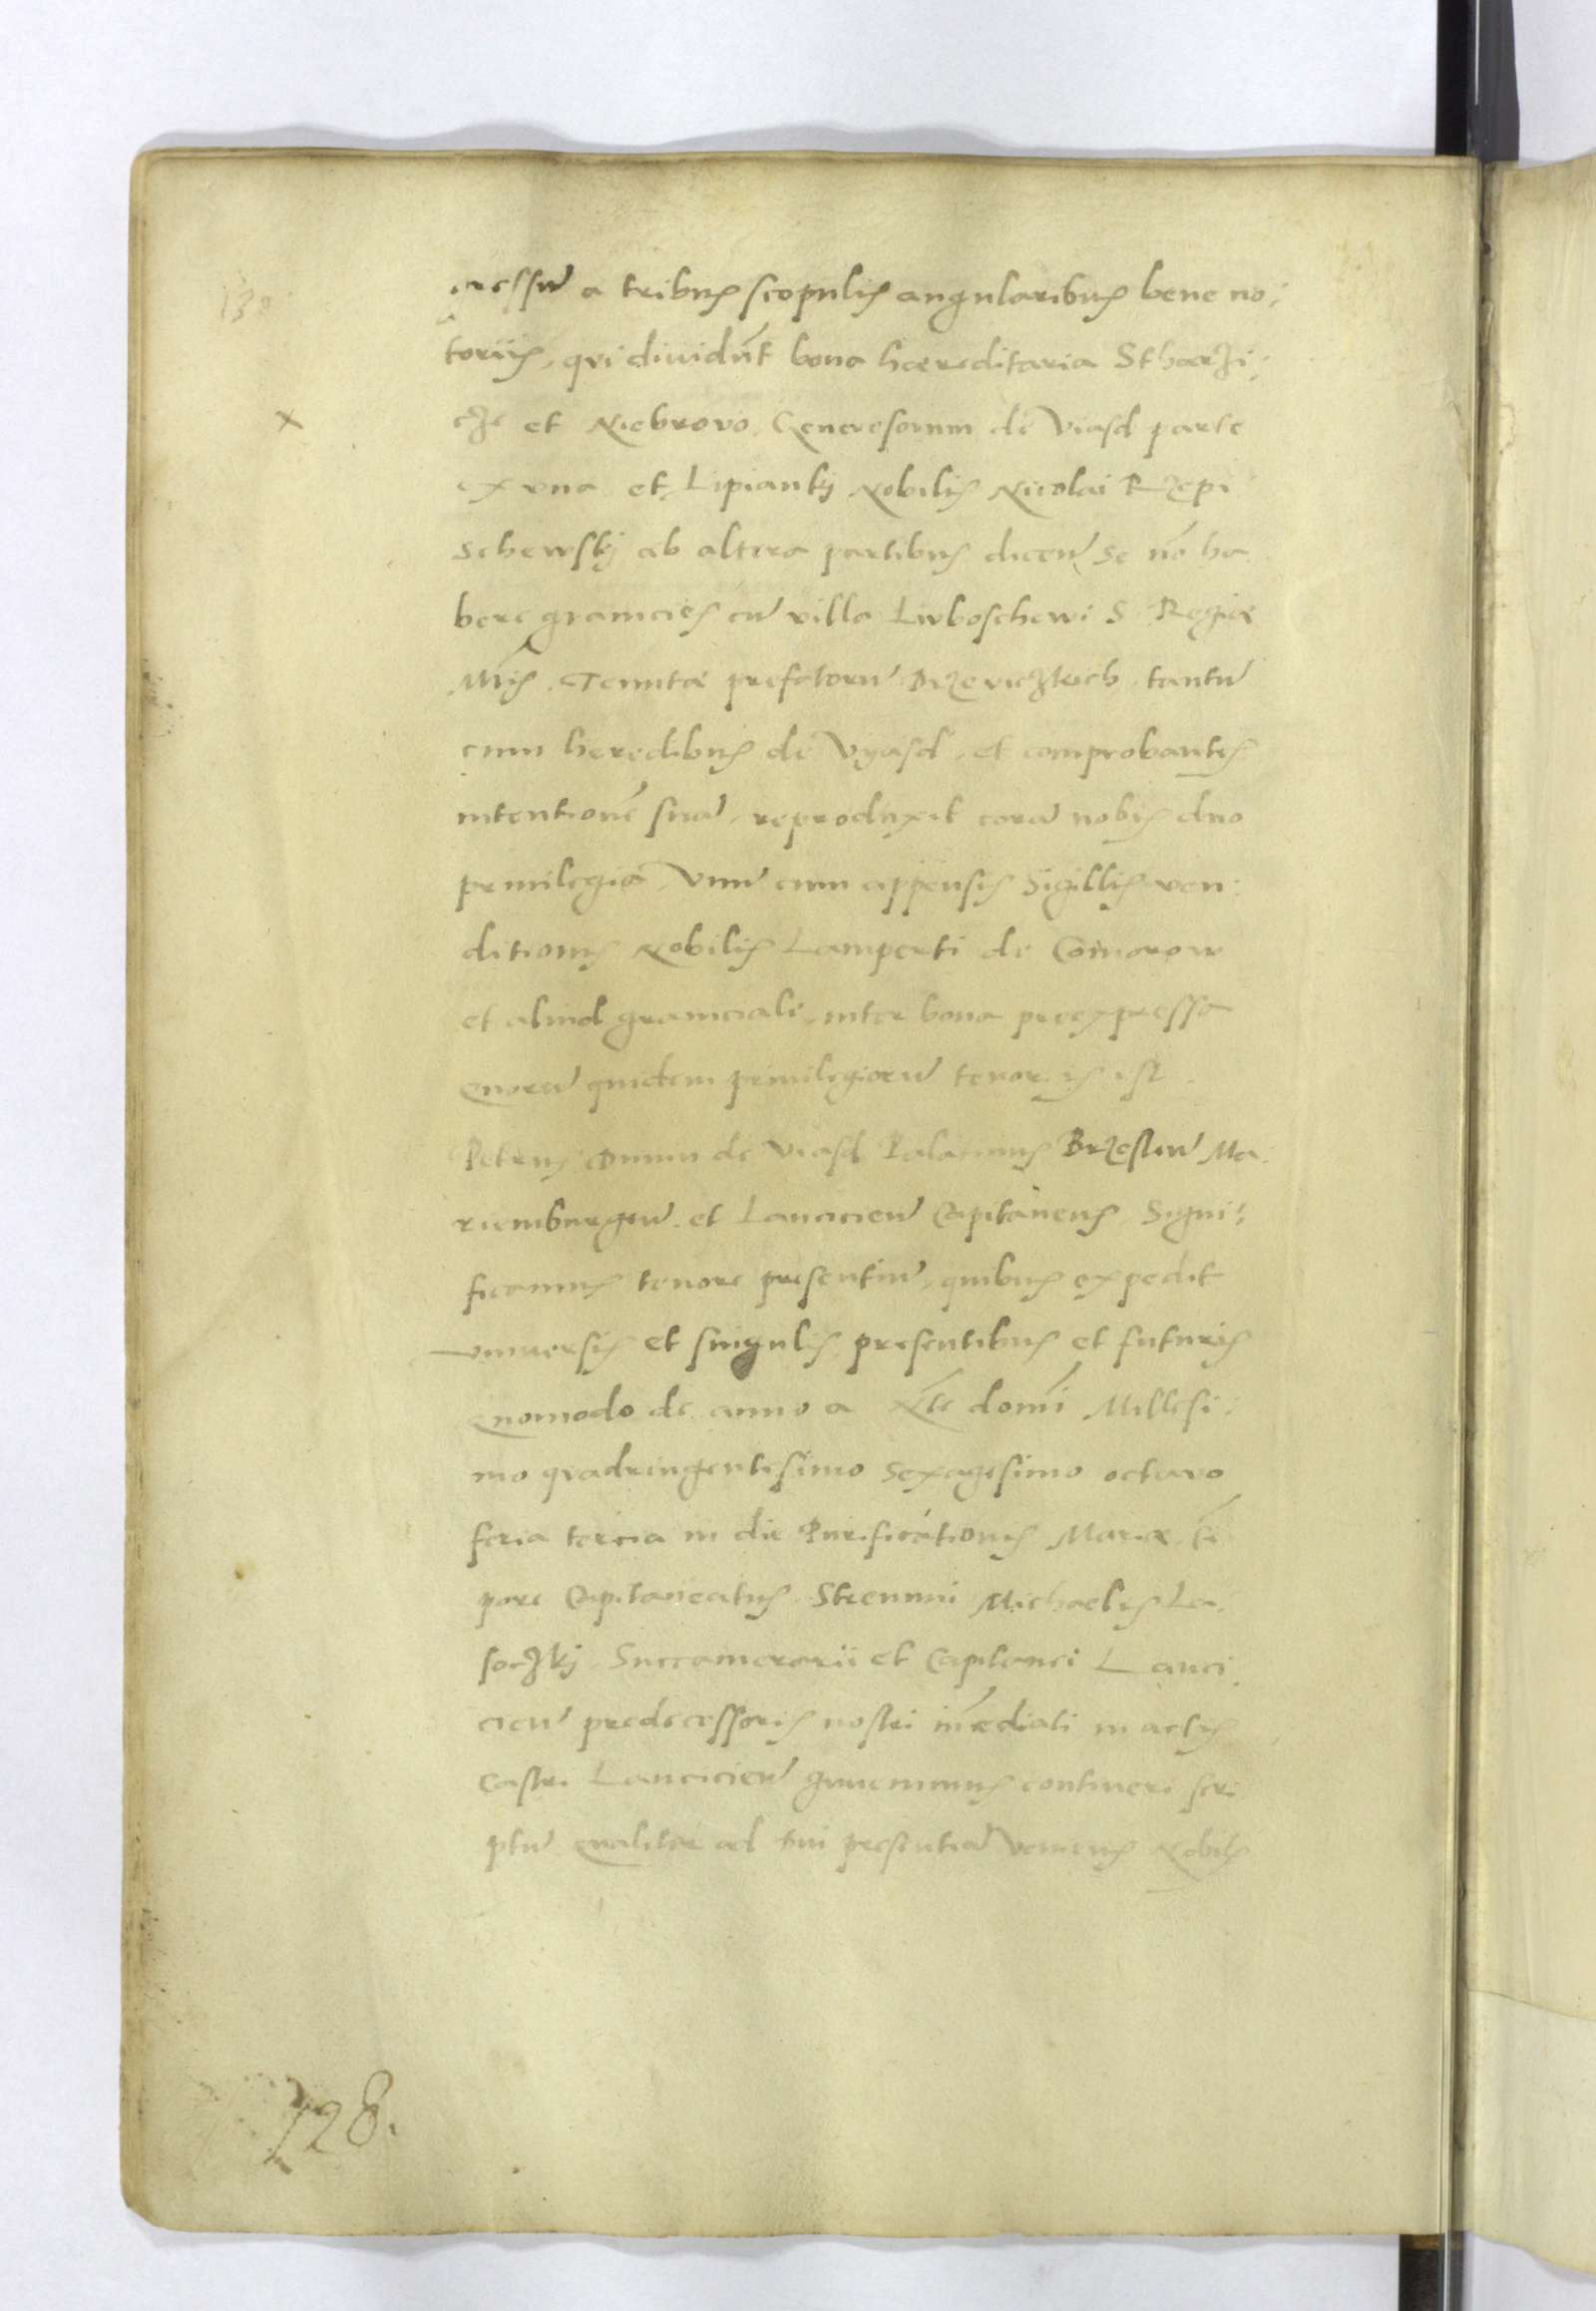 130
gressu͂ a tribus scopulis angularibus bene no:
toriis, qvi diuidu͂t bona hæreditaria Stharzi:
cze et Niebrovo Generosorum de Viasd parte
ex vna et Lipianky Nobilis Nicolai Rzepi
schewsky ab altera partibus dicen͂ se no͂ ha
bere granicies cu͂ villa Lvboschewi S Regiæ
Mtis. Tenutæ prefatoru͂ Drzeviczkich tantu͂
cum heredibus de Vyasd, et comprobantes
intentione͂ sua͂, reproduxit cora͂ nobis duo
priuilegia, Vnu͂ cum appensis Sigillis ven:
ditionis Nobilis Lamperti de Comorow
et aliud graniciale, inter bona preexpressa
Quoru͂ quidem priuilegioru͂ tenor is est.
Petrus Dunin de Viasd Palatinus Brzesten͂ Ma
riemburgen͂. et Lancicien͂ Capitaneus Signi:
ficamus tenore presentiu͂, quibus expedit
vniuersis et singulis presentibus et futuris
Quomodo de anno a Nte͂ domi͂ Millesi:
mo qvadringentesimo sexagesimo octavo
feria tercia in die Purificationis Mariæ te͂
pore Capitaneatus Strennui Michaelis La
soczky Succamerarii et Capitanei Lanci
cien͂ predecessoris nostri im͂ediati in actis
Castri Lancicien͂ Inuenimus contineri scri
ptu͂ Qualiter ad sui presentia͂ veniens Nobilis
128.